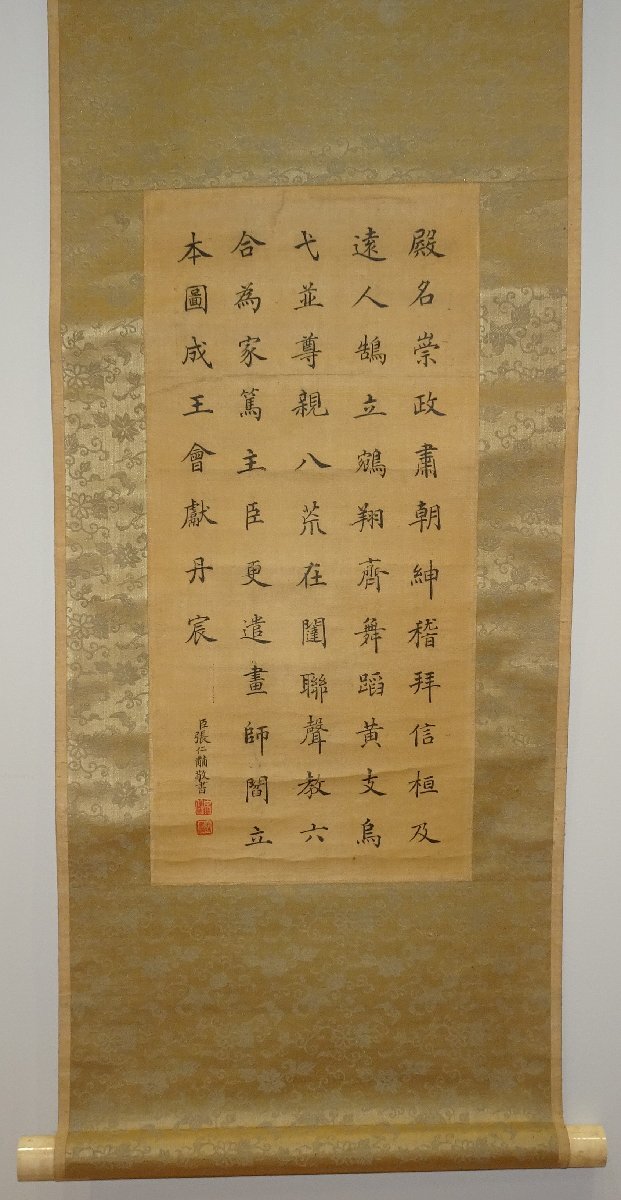 殿名崇政肅朝紳稽拜信桓及
遠人鵠立鵷翔齊舞蹈黃支烏
弋並尊親八荒在闥聯聲教六
合為家篤主臣更遣畫師閻立
本圖成王會獻丹宸
臣張仁黼敬書